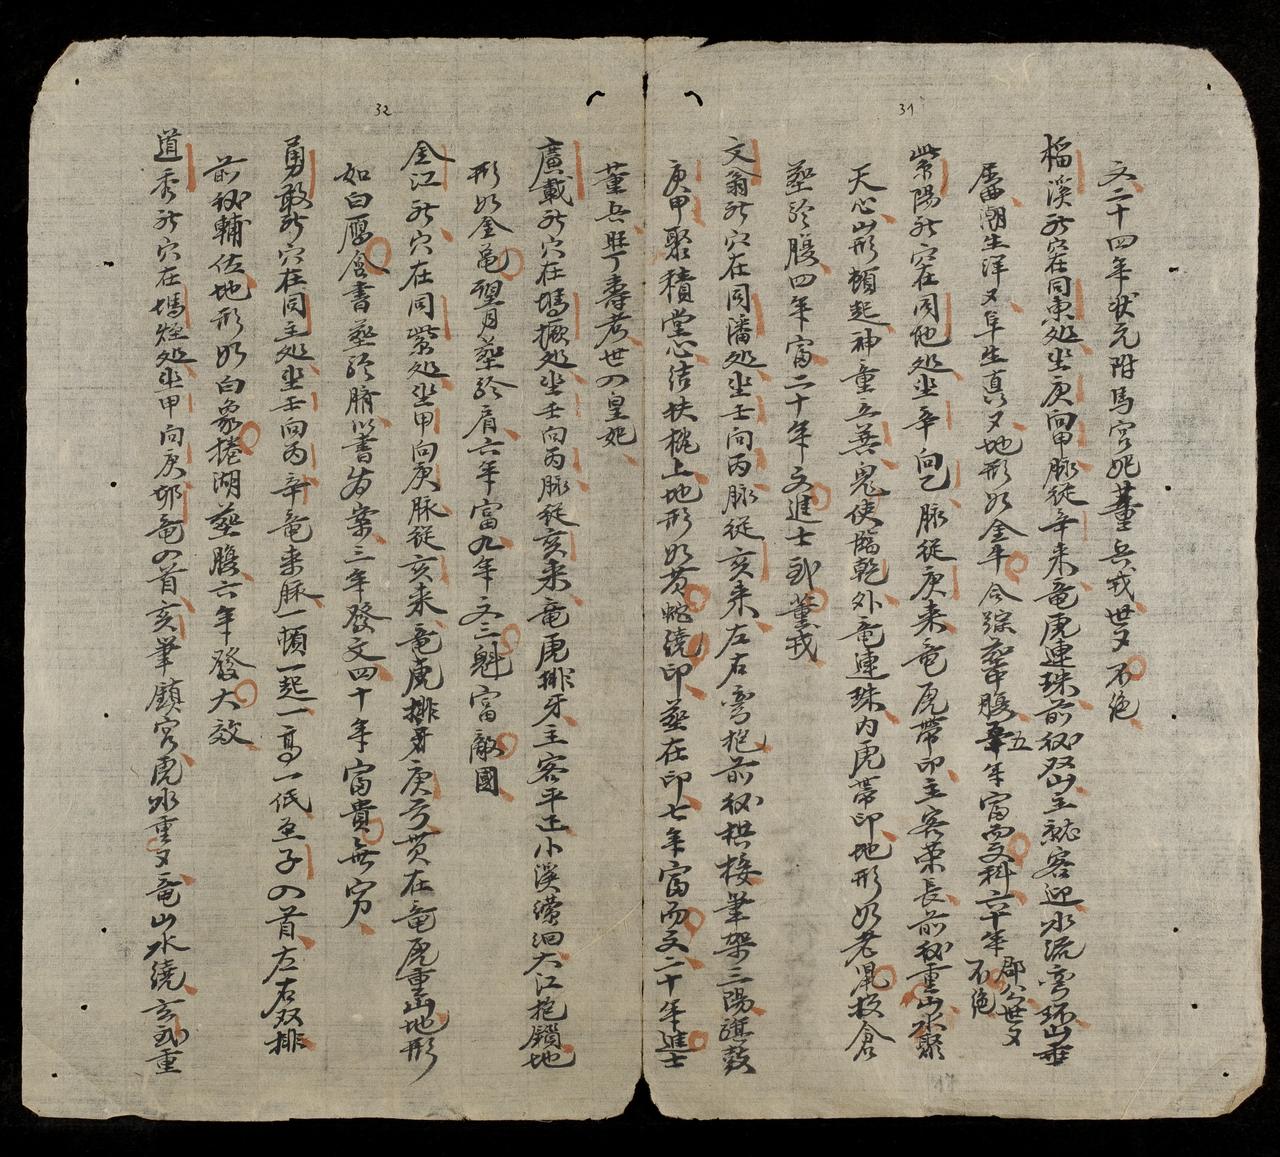 31
文二十四年状元附馬宮妃董兵戎世又不絶
榴溪社穴在同東処坐庚向甲脉從辛来竜虎連珠前砂双山主就客迎水流弯环山垂
屠潮生洋又阜生真又地形如金牛今踪葬中腹五年富而文科六十年郡公世又不絶
紫陽社穴在同他処坐辛向乙脉從庚来竜虎帶印主宾荣長前砂重山水聚
天心山形頓起神童立善鬼使臨乾外竜連珠内虎帶印地形如老鼠投倉
葬於腹四年富二十年文進士武董戎
文翁社穴在同潘処坐壬向丙脉從亥来左右弯抱前砂拱接筆架三陽旗鼓
庚甲聚積堂心結扶桃上地形如黄蛇繞印葬在印七年富而文二十年進士
32
董兵旺丁寿考世の皇妃
廣載社穴在塢擻処坐壬向丙脉從亥来竜虎排牙主客平正小溪濚洄大江抱鎖地
形如金亀望月葬於肩六年富九年文三魁富敵國
金江社穴在同紫処坐甲向庚脉從亥来竜虎排牙庚方贯在竜虎重山地形
如白雁含書葬於臍以書为案三年發文四十年富貴無穷
勇敢社穴在同主処坐壬向丙辛竜来脉一頓一起一高一低亥子の首左右双排
前砂輔佐地形如白象捲湖葬腹六年發大效
道秀社穴在塢烟処坐甲向庚節竜の首亥筆鎮宮虎水重又竜山水繞玄武重